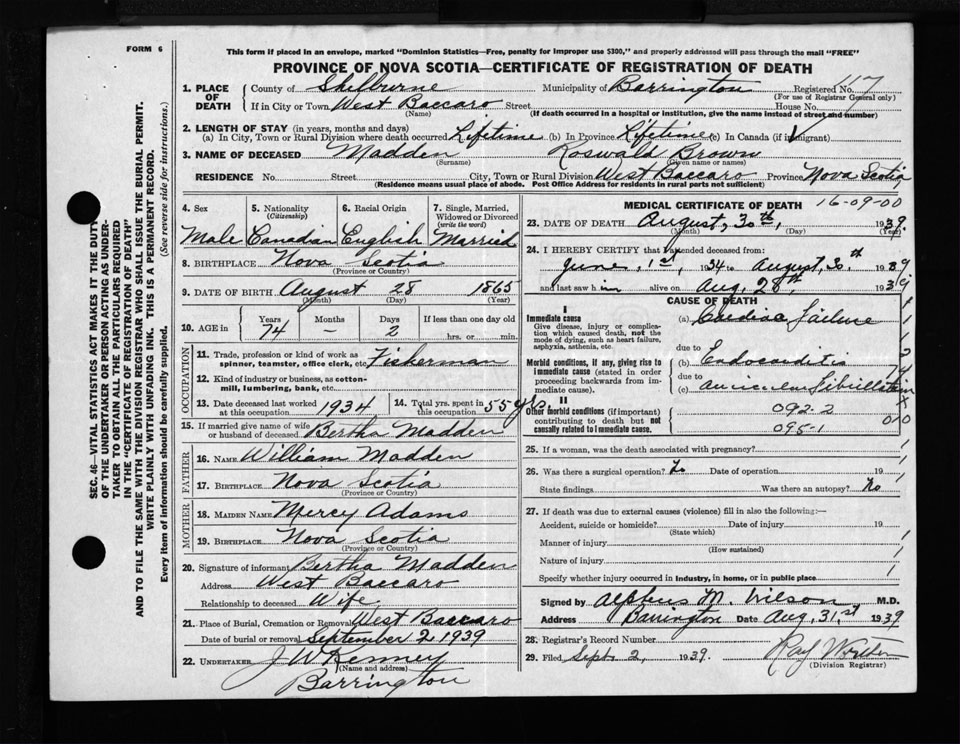 FORM 6
This form if placed in an envelope, marked "Dominion Statistics—Free, penalty for improper use $300," and properly addressed will pass through the mail "FREE"
PROVINCE OF NOVA SCOTIA—CERTIFICATE OF REGISTRATION OF DEATH
SEC. 46—VITAL STATISTICS ACT MAKES IT THE DUTY
OF THE UNDERTAKER OR PERSON ACTING AS UNDER-
TAKER TO OBTAIN ALL THE PARTICULARS REQUIRED
IN THE "CERTIFICATE OF REGISTRATION OF DEATH"
AND TO FILE THE SAME WITH THE DIVISION REGISTRAR WHO SHALL ISSUE THE BURIAL PERMIT.
WRITE PLAINLY WITH UNFADING INK. THIS IS A PERMANENT RECORD.
Every item of information should be carefully supplied. (See reverse side for instructions.)
1. PLACE OF DEATH County of Shelburne Municipality of Barrington Registered No. 117
(For use of Registrar General only)
If in City or Town West Baccaro Street House No.
(Name) (If death occurred in a hospital or institution, give the name instead of street and number)
2. LENGTH OF STAY (in years, months and days)
(a) In City, Town or Rural Division where death occurred Lifetime (b) In Province Lifetime (c) In Canada (if immigrant)
3. NAME OF DECEASED Madden Roswald Brown
(Surname) (Given name or names)
RESIDENCE No. Street City, Town or Rural Division West Baccaro Province Nova Scotia
(Residence means usual place of abode. Post Office Address for residents in rural parts not sufficient)
4. Sex 5. Nationality (Citizenship) 6. Racial Origin 7. Single, Married, Widowed or Divorced (write the word)
Male Canadian English Married
8. BIRTHPLACE Nova Scotia
(Province or Country)
9. DATE OF BIRTH August 28 1865
(Month) (Day) (Year)
10. AGE in Years Months Days If less than one day old
74 – 2 hrs. or min.
OCCUPATION
11. Trade, profession or kind of work as spinner, teamster, office clerk, etc. Fisherman
12. Kind of industry or business, as cotton-mill, lumbering, bank, etc.
13. Date deceased last worked at this occupation 1934 14. Total yrs. spent in this occupation 55 yrs.
15. If married give name of wife or husband of deceased Bertha Madden
FATHER
16. NAME William Madden
17. BIRTHPLACE Nova Scotia
(Province or Country)
MOTHER
18. MAIDEN NAME Mercy Adams
19. BIRTHPLACE Nova Scotia
(Province or Country)
20. Signature of informant Bertha Madden
Address West Baccaro
Relationship to deceased Wife
21. Place of Burial, Cremation or Removal West Baccaro
Date of burial or removal September 2 1939
22. UNDERTAKER J W Kenney
(Name and address)
Barrington
MEDICAL CERTIFICATE OF DEATH 16-09-00
23. DATE OF DEATH August, 30th, 1939.
(Month) (Day)
24. I HEREBY CERTIFY that I attended deceased from:
June, 1st, 1934 to August, 30th 1939
and last saw him alive on Aug. 28th 1939
CAUSE OF DEATH
I
Immediate cause
Give disease, injury or complication which caused death, not the mode of dying, such as heart failure, asphyxia, asthenia, etc.
(a) Cardiac Failure
due to
Morbid conditions, if any, giving rise to immediate cause (stated in order proceeding backwards from immediate cause).
(b) Endocarditis
due to
(c) auricular fibrillation
II
Other morbid conditions (if important) contributing to death but not causally related to immediate cause.
092-2
095-1
25. If a woman, was the death associated with pregnancy?
26. Was there a surgical operation? Date of operation 19
State findings Was there an autopsy? No
27. If death was due to external causes (violence) fill in also the following:—
Accident, suicide or homicide? Date of injury 19
(State which)
Manner of injury
(How sustained)
Nature of injury
Specify whether injury occurred in industry, in home, or in public place
Signed by Alpheus M. Wilson M.D.
Address Barrington Date Aug, 31st 1939
28. Registrar's Record Number
29. Filed Sept. 2, 1939. Ray
(Division Registrar)